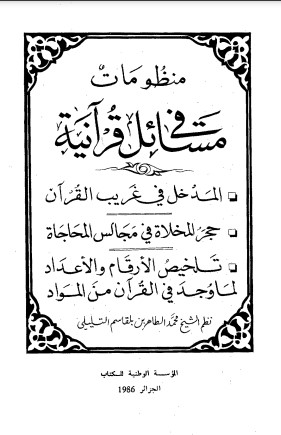 منظومات
في مسائل قرآنية
المدخل في غريب القرآن
حجر المخلاة في مجالس المحاجاة
تلخيص الأرقام والأعداد
لما وجد في القرآن من المواد
نظم الشيخ محمد الطاهر بن بلقاسم التليلي
المؤسسة الوطنية للكتاب
الجزائر 1986